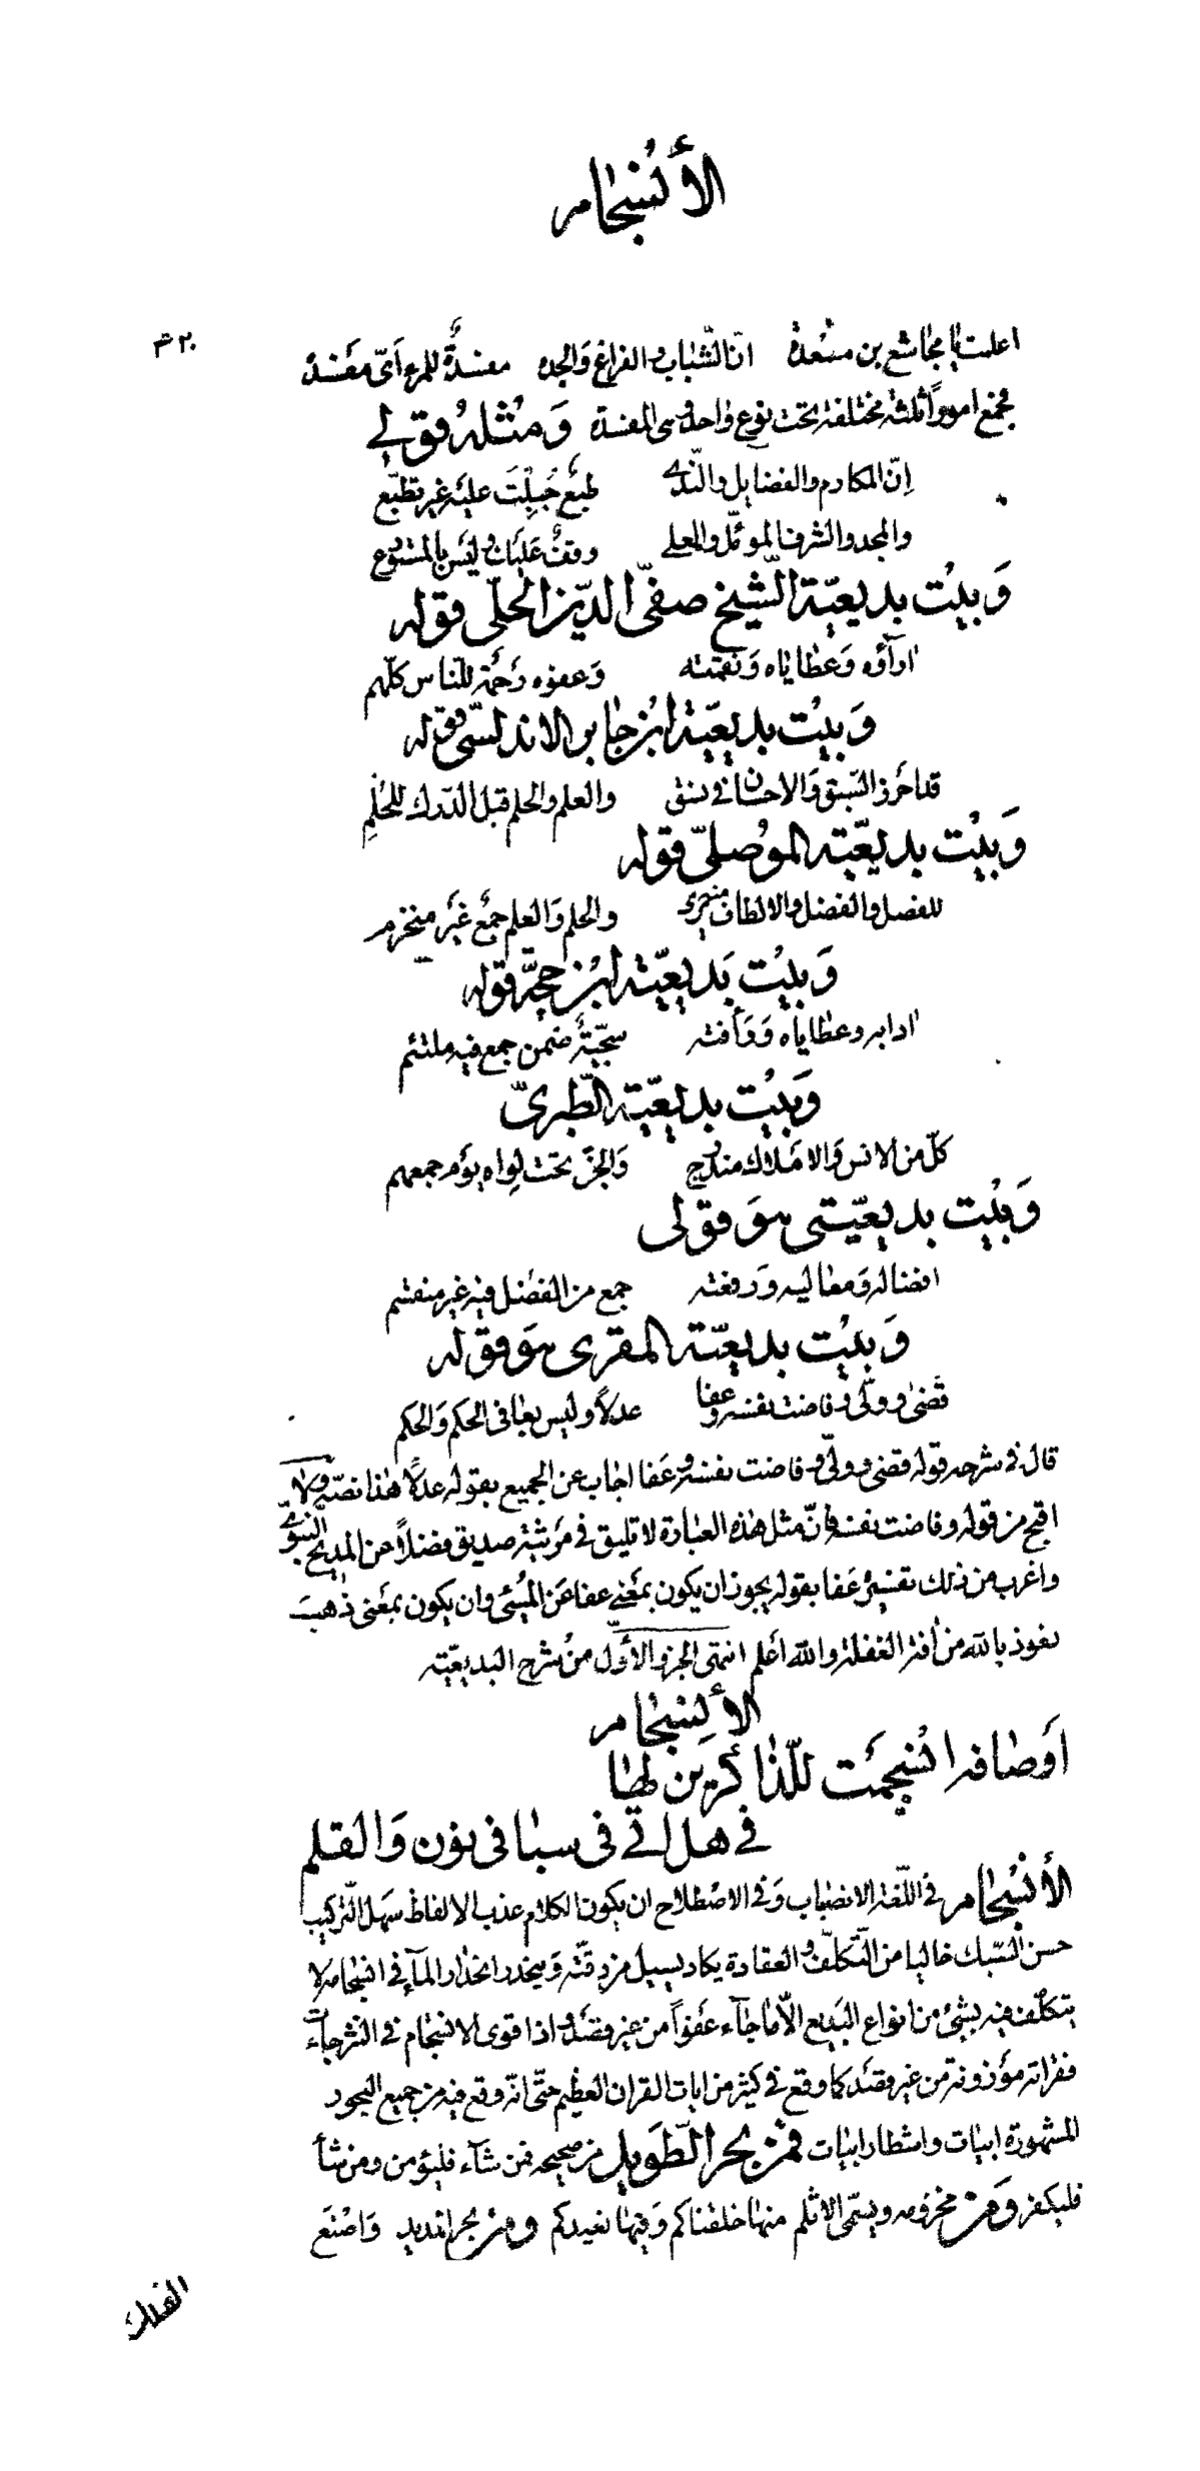 الأنسجام
٣٢٠
اعلمت يا مجاشع بن مسعدة انّ الشّباب والفراغ والجده مفسدةٌ للمرء اَيّ مفسده
فجمع اموراً ثلثة مختلفة تحت نوع واحد وهى المفسدة وَمثله قولى
اِنّ المكارم والفضايل والنّدى طبعٌ جُبِلتَ عليه غير تطبّع
والمجد والشرف الموثّل والعلى وقفٌ عليك وليس بالمتنوّع
وَبيت بديعيّة الشّيخ صفىّ الدّين الحلّى قوله
اراۤؤه وَعطاياه وَنقمته وَعفوه رَحمة للنّاس كلّهم
وَبيت بديعيّة ابن جابر الاندلسىّ قوله
قد احرز السّبق وَالاحسان فى نسق والعلم والحلم قبل الدّرك للحُلُمِ
وَبيت بديعيّة الموصلىّ قوله
للفصل والفضل والالطاف منه يرى والحلم وَالعلم جمع غير منخرم
وَبيت بَديعيّة ابن حجّة قوله
ادابه وعطاياه وَرَأفته سجيّةٌ ضمن جمع فيه ملتئم
وَبيت بديعيّة الطّبرىّ
كلّ من الانس وَالاملاك مندرج وَالجنّ تحت لِواه يوم جمعهم
وَبيت بديعيّتى هوَ قولى
افضاله وَمعاليه وَرفعته جمع من الفضل فيه غير منقسم
وَبيت بديعيّة المقرى هوَ قوله
قضى وولّى وفاضت نفسه وعفا عدلاً وليس بعافى الحكم وَالحكم
قال فى شرحه قوله قضى وولّى وفاضت نفسه وعَفا اجاب عن الجميع بقوله عدلاً هذا نصّه ولا
اقبح من قوله وفاضت نفسه فانّ مثل هذه العبارة لا تليق فى مرثية صديق فضلاً عن المديح النّبوىّ
واغرب من ذلك تفسيره عَفا بقوله يجوز ان يكون بمعنى عفا عَن المسئ وان يكون بمعنى ذهبَ
نعوذ بالله من افة الغفلة والله اَعلم انتهى الجزو الاَوّل من شرح البديعيّة
الأنسِجام
اَوصافه انسجَمت للذّاكرين لها
فى هل اتى فى سبا فى نون وَالقلم
الأنسجام فى اللّغة الانصباب وَفى الاصطلاح ان يكون الكلام عذب الالفاظ سهل التّركيب
حسن السّبك خاليا من التّكلّف والعقادة يكاد يسيل من رقّته وَينحدر انحدار الماۤء فى انسجامه لا
يتكلّف فيه بشئ من انواع البَديع الاّ ما جاۤء عفواً من غير قصد واذا قوى الانسجام فى النثر جاۤءت
فقراته موزونة من غير قصد كما وقع فى كثير من ايات القران العظيم حتّى انّه وقع فيه من جميع البحور
المشهورة ابيات واشطار ابيات فمن بحر الطّويل من صحيحه فمن شاۤء فليؤمن ومن شاۤء
فليكفر وَمن مخرومه ويسمّى الاثلم منها خلقناكم وَفيها نعيدكم ومن بحر المديد وَاصنع
الفلك